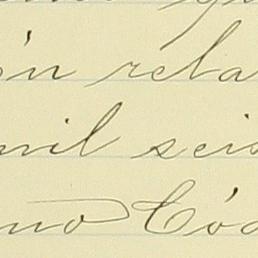 ón rela
mil seis
no Cód